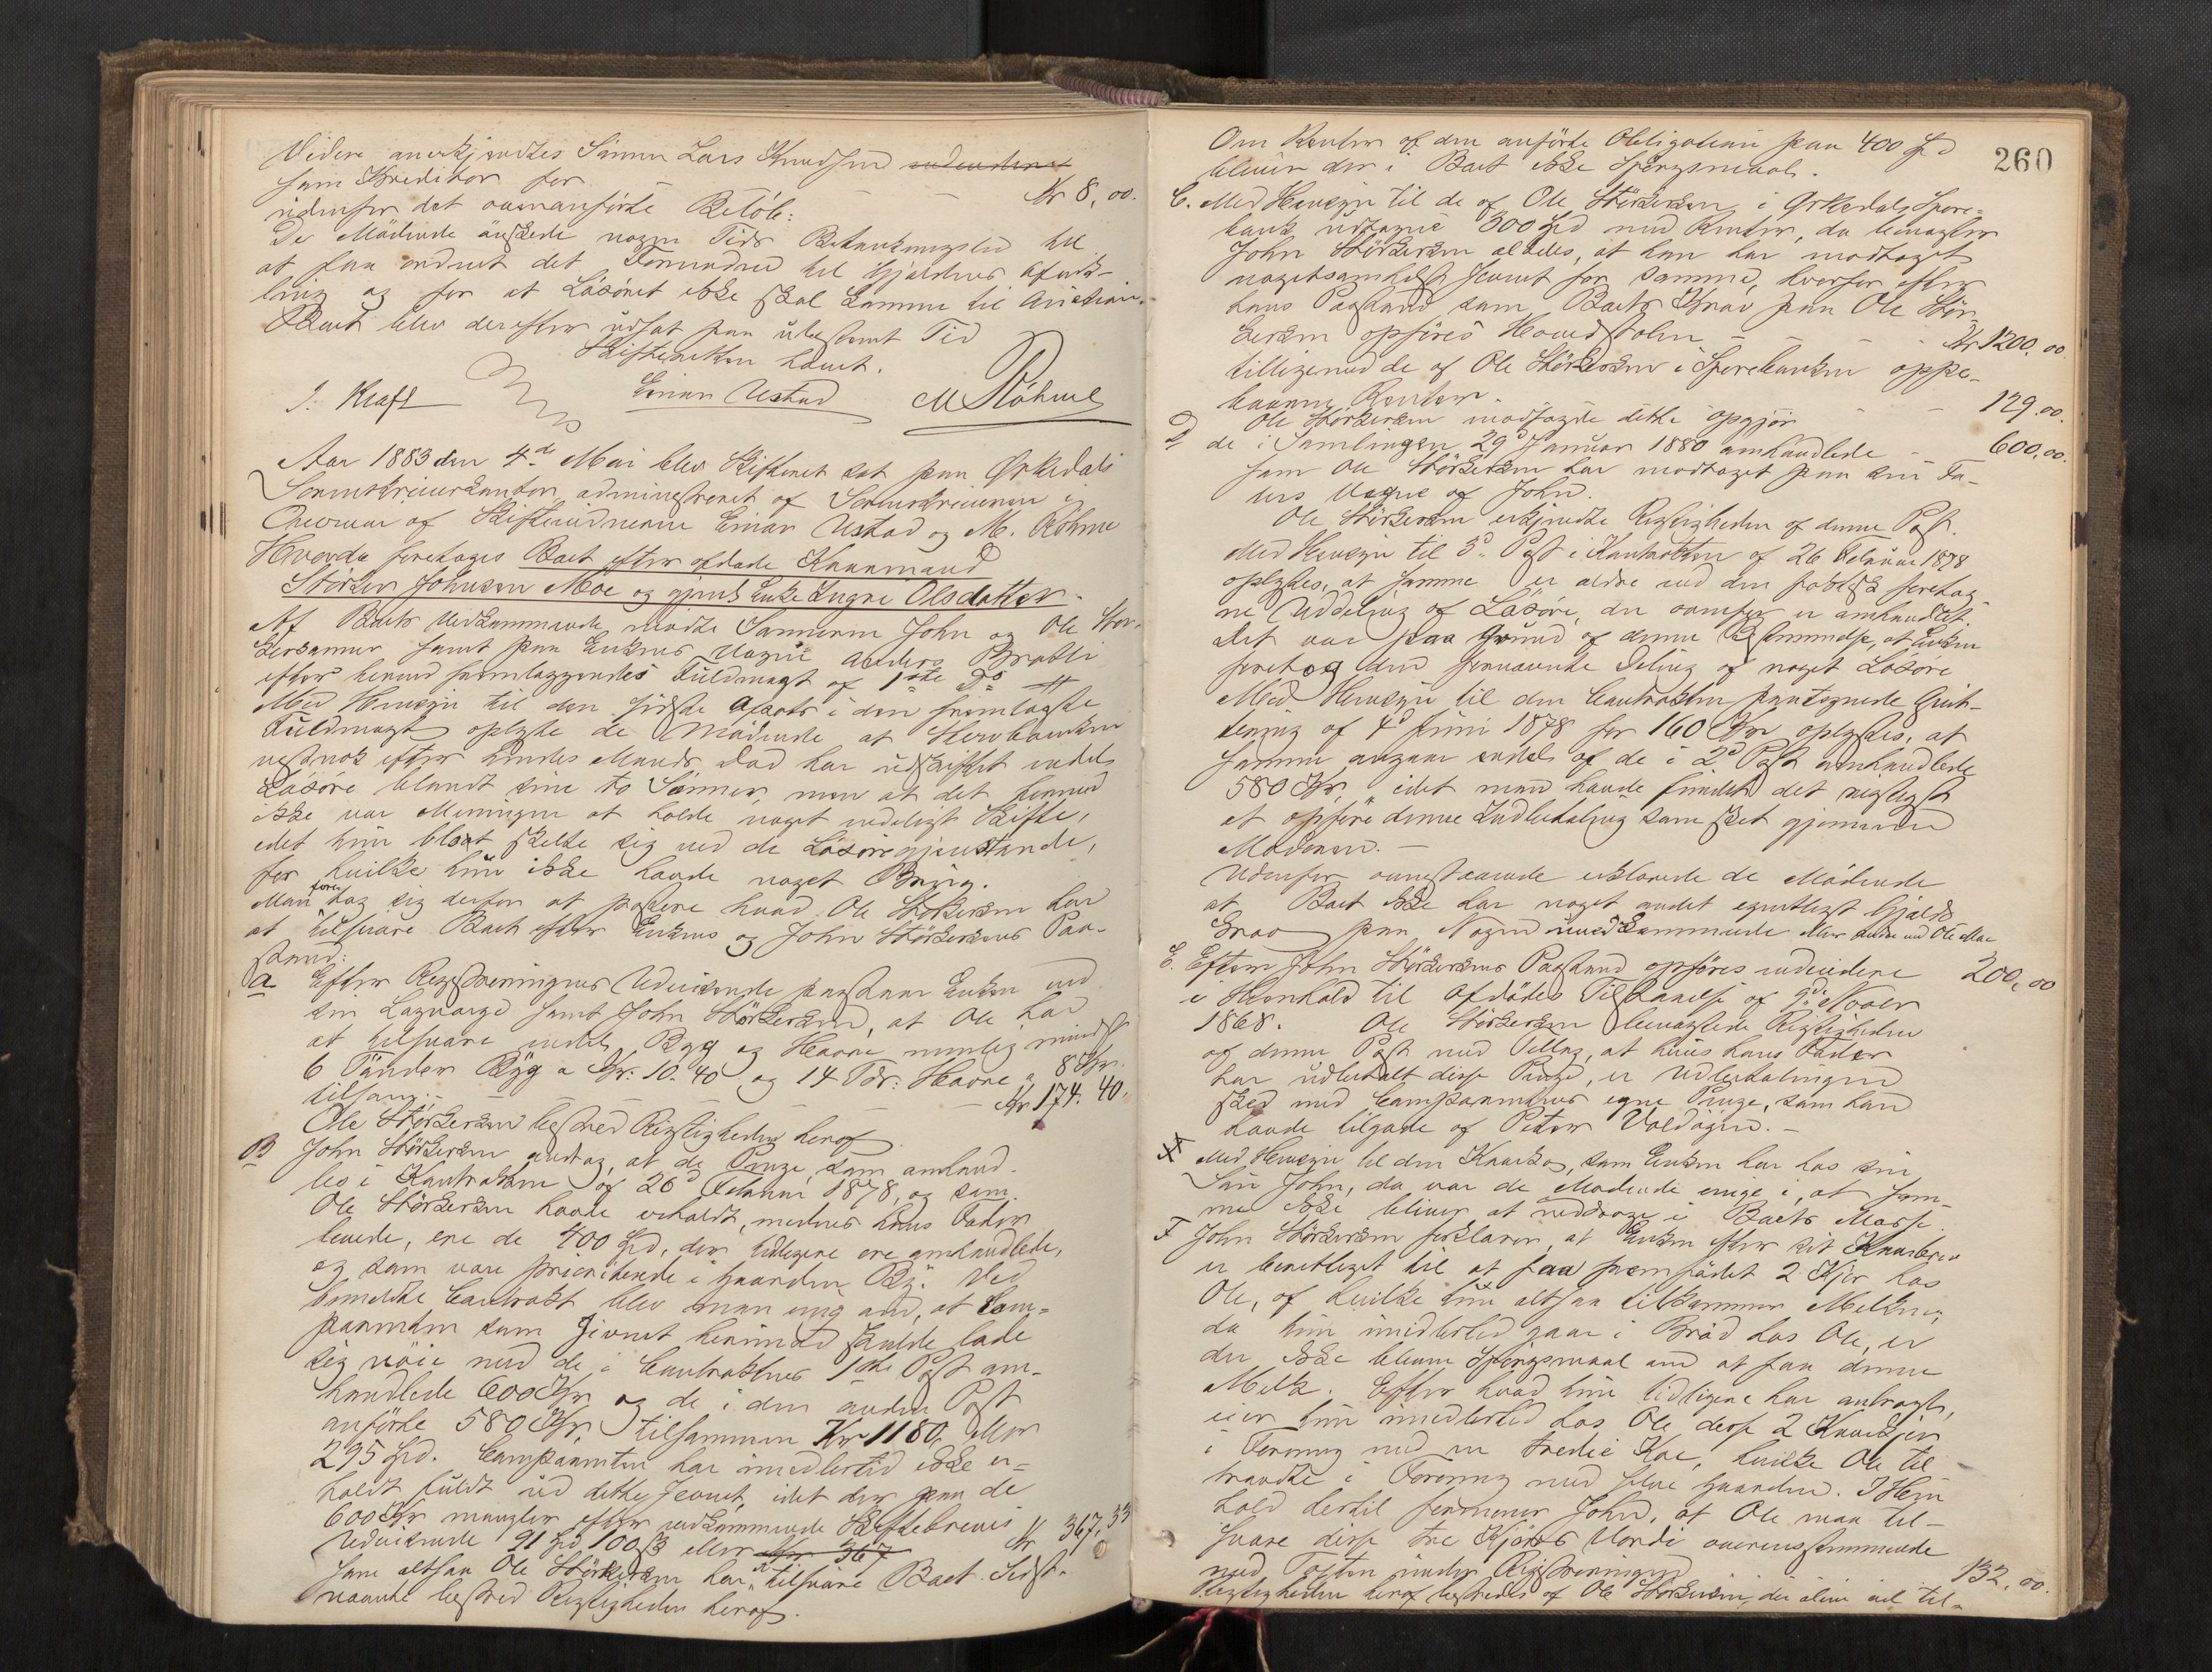 Videre anerkjendtes Sönnen Lars Knudsen
som Kreditor for
udenfor det ovenanförte Belöb: Kr 8,00.
De Mödende önskede nogen Tids Betænkningstid til
at faa ordnet det Fornødne til Gjældens Afvik-
ling og for at Lösöret ikke skal komme til Auction.
Boet blev derefter udsat paa ubestemt Tid
Skifteretten hævet.
J. Kraft Einar Ustad M Röhme
Aar 1883 den 4de Mai blev Skifteret sat paa Ørkedals
Sorenskriverkontor, administreret af Sorenskriveren i
Overvær af Skiftevidnerne Einar Ustad og M. Röhme
Hvorda foretoges Boet efter afdöde Kaarmand
Störker Johnsen Moe og gjenl. Enke Ingri Olsdatter.
Af Boets Vedkommende mödte Sønnerne John og Ole Stör-
kersønner samt paa Enkens Vegne Anders Bratli
efter herved fremlæggendes Fuldmagt af 1ste ds
Med Hensyn til den sidste Aftale i den fremlagte
Fuldmagt oplyste de Mödende at Stervboenken
vistnok efter hendes Mands Död har udskiftet endel
Lösöre blandt sine to Sönner, men at det hermed
ikke var Meningen at holde noget endeligt Skifte,
idet hun blot skilte sig ved de Lösöregjenstande,
for hvilke hun ikke havde noget Brug.
Man foretog sig derfor at postere hvad Ole Störkersen har
at tilsvare Boet efter Enkens og John Störkersens Paa-
stand:
a Efter Registreringens Udvisende paastaar Enken ved
sin Laugværge samt John Störkersen, at Ole har
at tilsvare endel Byg og Havre nemlig mindst
6 Tönder Byg a Kr. 10.40 og 14 Tdr. Havre a 8 Kr.
tilsam: Kr 174.40.
Ole Störkersen bestred Rigtigheden heraf
B John Störkersen androg, at de Penge, som omhand-
les i Kontrakten af 26d Februar 1878, og som
Ole Störkersen havde erholdt, medens hans Fader
levede, ere de 400 Spd, der tidligere ere omhandlede,
og som vare prioriterede i Gaarden By. Ved
bemeldte Contrakt blev man enig om, at Com-
parenten som Jevnet herimod skulde lade
sig nöie med de i Contraktens 1ste Post om-
handlede 600 Kr og de i den anden Post
anförte 580 Kr tilsammen Kr 1180, eller
295 Spd. Comparenten har imidlertid ikke er-
holdt fuldt ud dette Jevnet, idet der paa de
600 Kr mangler efter vedkommende Skiftebrevs
Udvisende 91 Spd 100 ß eller Kr 367 Kr 367,33
som altsaa Ole Störkersen har at tilsvare Boet. Sidst-
nævnte bestred Rigtigheden heraf.
260
Om Renter af den anförte Obligation paa 400 Spd
bliver der i Boet ikke Spörgsmaal.
C. Med Hensyn til de af Ole Störkersen i Ørkedals Spare-
bank udtagne 300 Spd med Renter, da benægter
John Störkersen aldeles, at han har modtaget
nogetsomhelst Jevnet for samme, hvorfor efter
hans Paastand som Boets Krav paa Ole Stör-
kersen opföres Hovedstolen Kr 1200.00.
tilligemed de af Ole Störkersen i Sparebanken oppe-
baarne Renter 129.00.
Ole Störkersen modsagde dette Opgjör
D de i Samlingen 29d Januar 1880 omhandlede 600,00.
som Ole Störkersen har modtaget paa sin Fa-
ders Vegne af John.
Ole Störkersen erkjendte Rigtigheden af denne Post.
Med Hensyn til 3d Post i Kontrakten af 26 Februar 1878
oplystes, at samme er ældre end den faktisk foretag-
ne Uddeling af Lösöre, der ovenfor er omhandlet.
Det var paa Grund af denne Bestemmelse, at Enken
foretog den fornævnte Deling af noget Lösöre
Med Hensyn til den Contrakten paategnede Qvit-
tering af 4d Juni 1878 for 160 Kr oplystes, at
samme angaar endel af de i 2d Post omhandlede
580 Kr, idet man havde fundet det rigtigst
at opföre denne Indbetaling som sket gjennem
Moderen. —
Udenfor ovenstaaende erklærede de Mödende
at Boet ikke har noget andet egentligt Gjælds
Krav paa Nogen uvedkommende eller andre end Ole Moe
E. Efter John Störkersens Paastand opföres endvidere 200,00
i Henhold til Afdödes Tilstaaelse af 9de Novbr
1868. Ole Störkersen benægtede Rigtigheden
af denne Post med Tillæg, at hvis hans Fader
har udbetalt disse Penge, er Udbetalingen
sked med Comparentens egne Penge, som han
havde tilgode af Peter Voldöien. —
Med Hensyn til den Kaarko, som Enken har hos sin
Sön John, da var de Mödende enige i, at sam-
me ikke bliver at inddrage i Boets Masse.
F John Störkersen forklarer, at Enken efter sit Kaarbrev
er berettiget til at faa fremfödet 2 Kjör hos
Ole, af hvilke hun altsaa tilkommer Melken;
da hun imidlertid gaar i Bröd hos Ole, er
der ikke bleven Spörgsmaal om at faa denne
Melk. Efter hvad hun tidligere har androgt,
eier hun imidlertid hos Ole disse 2 Kaarkjör
i Forening med en tredie Koe, hvilke Ole til-
traadte i Forening med selve Gaarden. I Hen-
hold hertil formener John, at Ole maa til-
svare disse tre Kjörs Værdi overensstemmende
med Taxten under Registreringen 132,00.
Rigtigheden heraf bestredes af Ole Störkersen, der alene vil til-